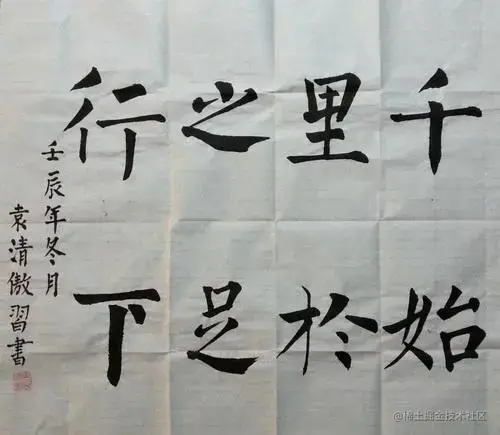 千始
里於
之足
行下
壬辰年冬月
袁清傲習書
@稀土掘金技术社区